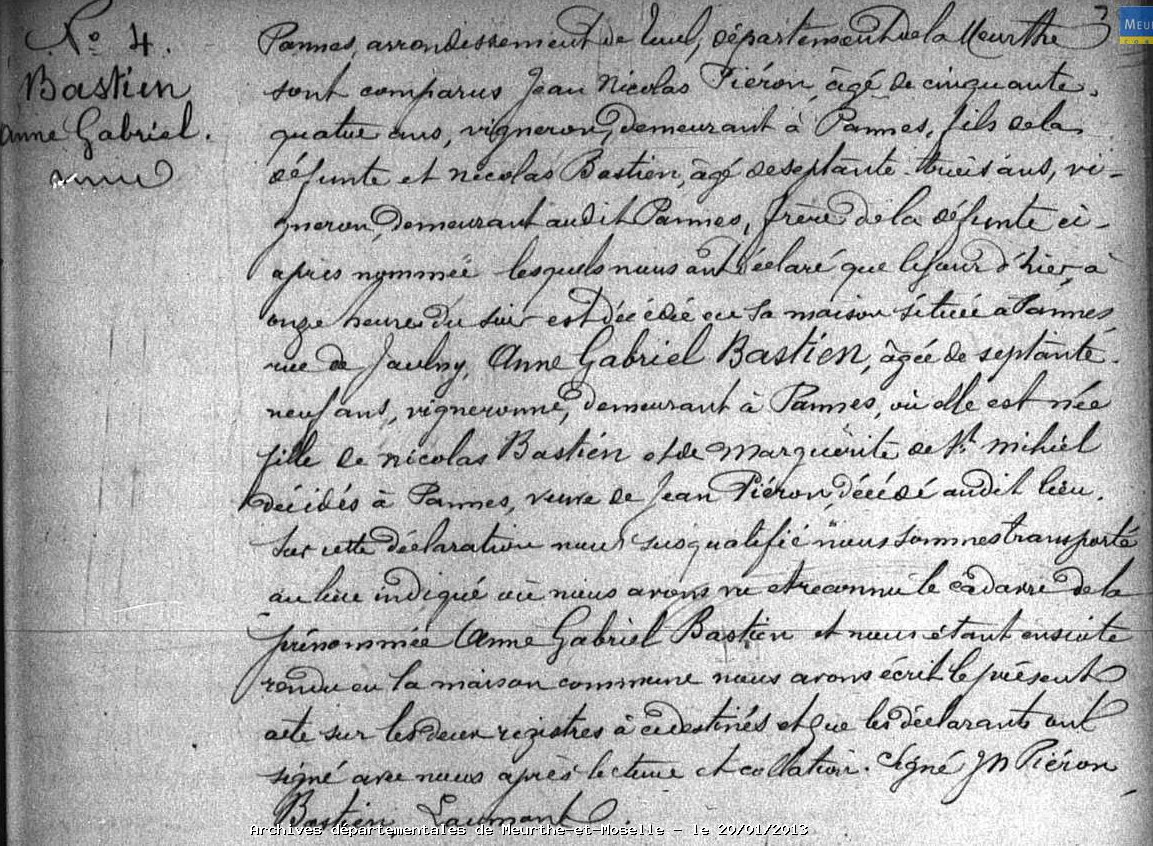 No 4.
Bastien
Anne Gabriel.
Pannes, arrondissement de Toul, département de la Meurthe 3
sont comparus Jean Nicolas Piéron, âgé de cinquante.
quatre ans, vigneron, demeurant à Pannes, fils de la
défunte et Nicolas Bastien, âgé de septante trois ans, vi-
gneron, demeurant audit Pannes, frère de la défunte ci-
après nommée lesquels nous ont déclaré que le jour d'hier, à
onze heures du soir est décédée en sa maison située à Pannes
rue de Jaulny, Anne Gabriel Bastien, âgée de septante.
neuf ans, vigneronne, demeurant à Pannes, où elle est née
fille de Nicolas Bastien et de Marguerite de St. Mihiel
décédés à Pannes, veuve de Jean Piéron, décédé audit lieu.
Sur cette déclaration nous susqualifié nous sommes transporté
au lieu indiqué où nous avons vu et reconnu le cadavre de la
prénommée Anne Gabriel Bastien et nous étant ensuite
rendu en la maison commune nous avons écrit le présent
acte sur les deux registres à ce destinés et que les déclarants ont
signé avec nous après lecture et collation. Signé JN Piéron
Bastien Laumont.
Archives départementales de Meurthe-et-Moselle - le 20/01/2013